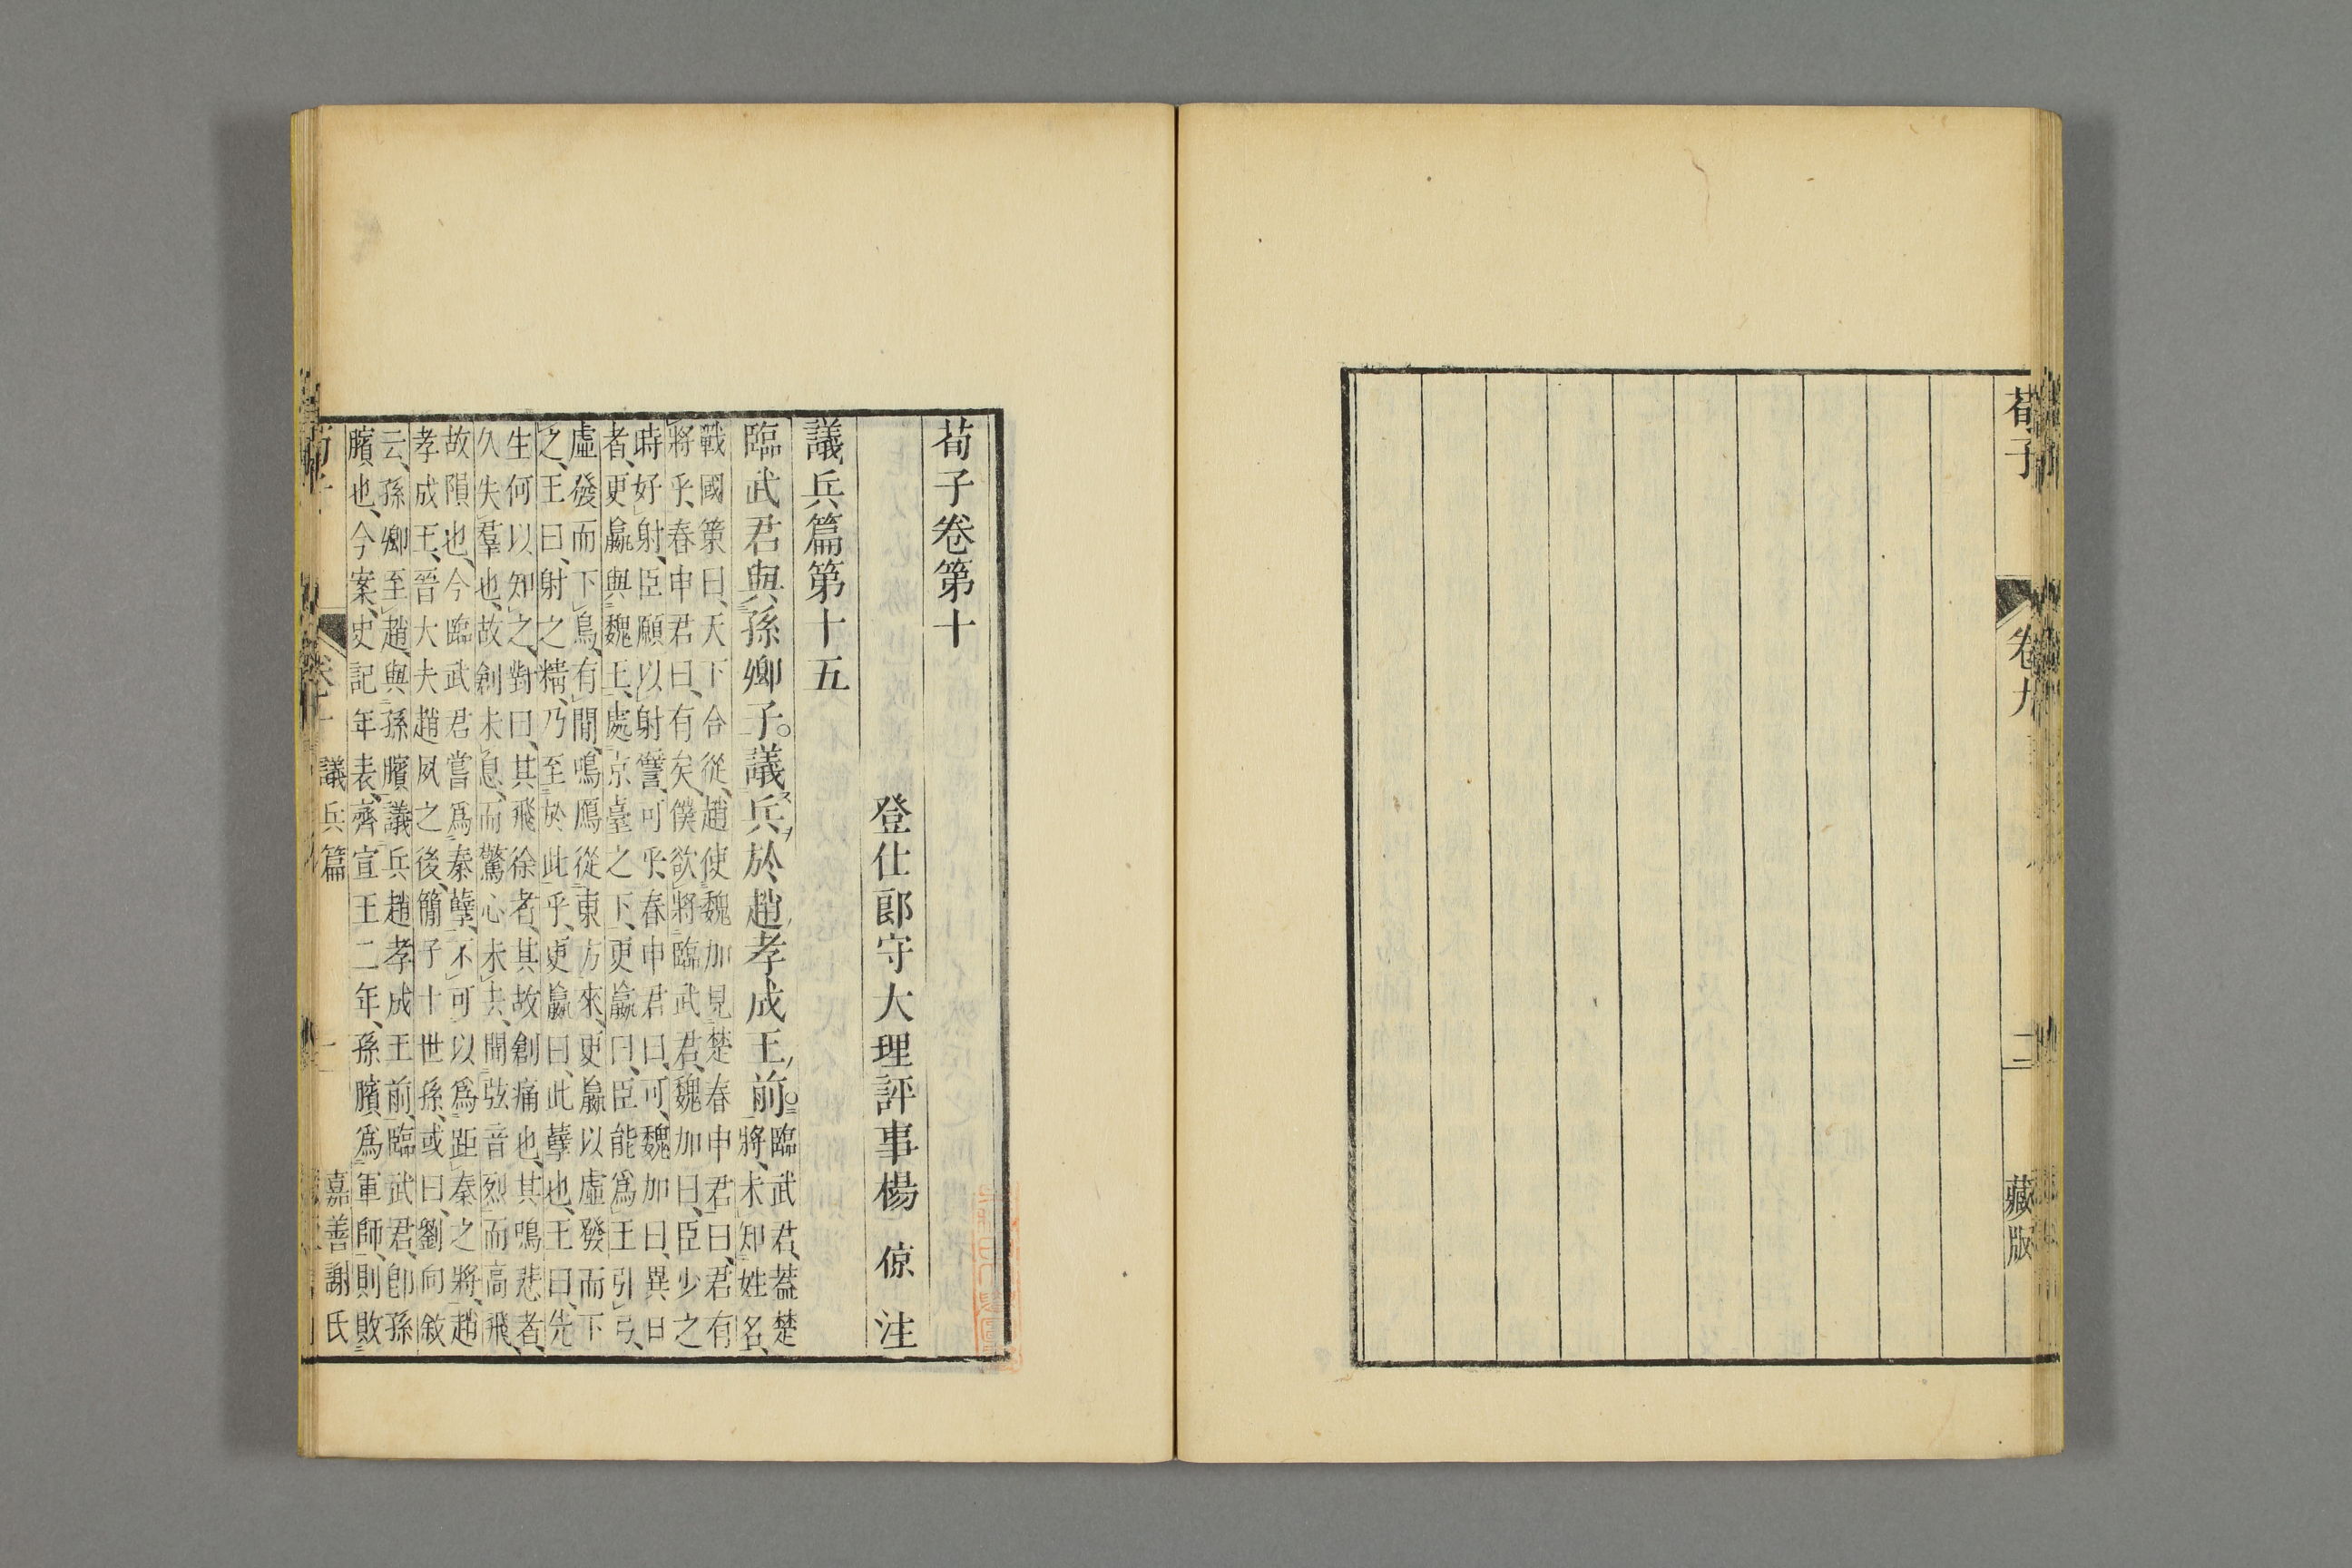 荀子
卷九
二
藏版
荀子卷第十
登仕郎守大理評事楊 倞 注
議兵篇第十五
臨武君與孫卿子。議兵於趙孝成王前。
臨武君、蓋楚
將、未知姓名、
戰國策曰、天下合從、趙使魏加見楚春申君曰、君有
將乎、春申君曰、有矣、僕欲將臨武君、魏加曰、臣少之
時好射、臣願以射譬、可乎、春申君曰、可、魏加曰、異日
者、更羸與魏王、處京臺之下、更羸曰、臣能爲王引弓、
虛發而下鳥、有閒、鳴鴈從東方來、更羸以虛發而下
之、王曰、射之精、乃至於此乎、更羸曰、此孽也、王曰、先
生何以知之、對曰、其飛徐者、其故創痛也、其鳴悲者、
久失羣也、故創未息、而驚心未去、聞弦音烈而高飛、
故隕也、今臨武君嘗爲秦孽、不可以爲距秦之將、趙
孝成王、晉大夫趙夙之後、簡子十世孫、或曰、劉向敘
云、孫卿至趙、與孫臏議兵趙孝成王前、臨武君、卽孫
臏也、今案、史記年表、齊宣王二年、孫臏爲軍師、則敗
議兵篇
一
嘉善謝氏